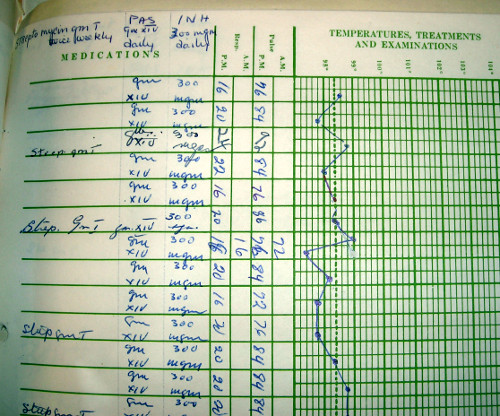 PAS INH
Streptomycin gm I gm XIV 300 mgm
twice weekly daily daily
TEMPERATURES, TREATMENTS
AND EXAMINATIONS
MEDICATIONS
P.M. Resp. A.M. P.M. Pulse A.M.
98° 99° 100° 101° 102° 103°
gm 300
XIV mgm 16 76
gm 300
XIV mgm 20 84
300
XIV mgm
Strep gm I gm 300
XIV mgm 22 84
gm 300
XIV mgm 16 76
Strep. Gm I gm XIV 300 20 86
gm 300 72
XIV mgm 16
gm 300
XIV mgm 20 84
gm 300
XIV mgm 16 72
Strep gm I gm 300
XIV mgm 76
gm 300
XIV mgm 20 84
gm 300
XIV mgm 20 84
gm 300
84